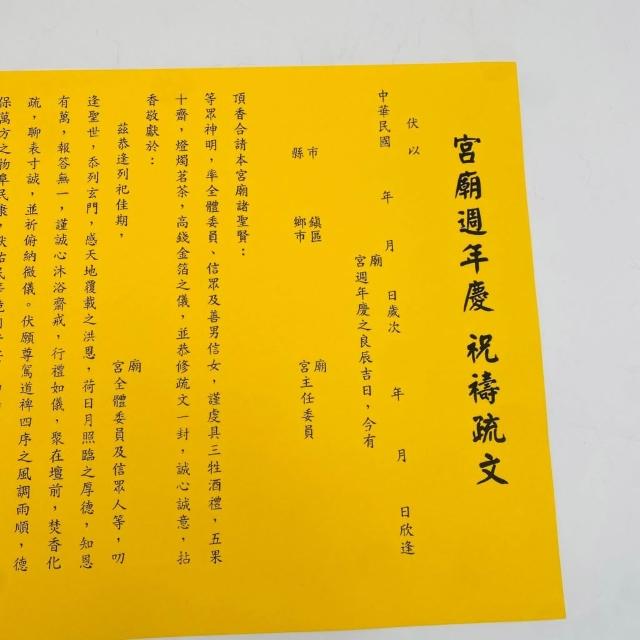 宮廟週年慶 祝禱疏文
伏以
中華民國 年 月 日歲次 年 月 日欣逢
廟
宮週年慶之良辰吉日，今有
市 鎮區 廟
縣 鄉市 宮主任委員
頂香合請本宮廟諸聖賢：
等眾神明，率全體委員、信眾及善男信女，謹虔具三牲酒禮，五果
十齋，燈燭茗茶，高錢金箔之儀，並恭修疏文一封，誠心誠意，拈
香敬獻於：
廟
茲恭逢列祀佳期， 宮全體委員及信眾人等，叨
逢聖世，忝列玄門，感天地覆載之洪恩，荷日月照臨之厚德，知恩
有萬，報答無一，謹誠心沐浴齋戒，行禮如儀，聚在壇前，焚香化
疏，聊表寸誠，並祈俯納微儀。伏願尊駕道裨四序之風調雨順，德
保萬方之物阜民康，